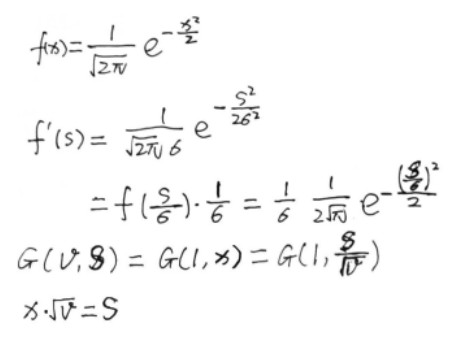 f(x)=\frac{1}{\sqrt{2\pi}} e^{-\frac{x^2}{2}}
f'(s)=\frac{1}{\sqrt{2\pi}6} e^{-\frac{s^2}{26^2}}
=f(\frac{s}{6})\cdot\frac{1}{6}=\frac{1}{6}\frac{1}{2\sqrt{\pi}} e^{-\frac{(\frac{s}{6})^2}{2}}
G(v,s)=G(1,x)=G(1,\frac{s}{\sqrt{v}})
x\cdot\sqrt{v}=s